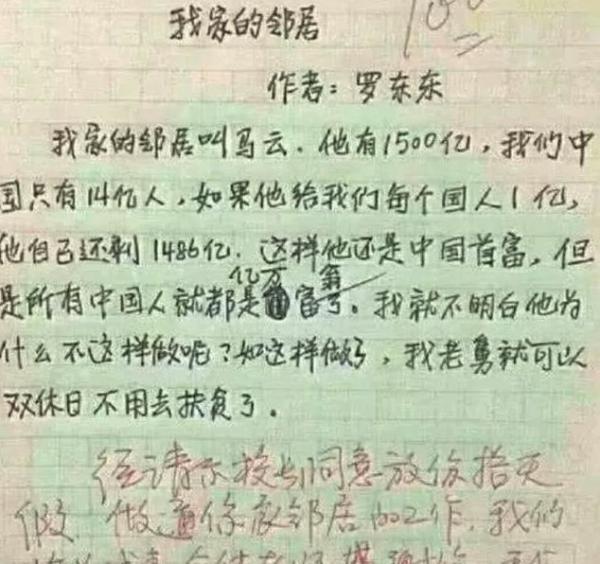 我家的邻居
100
作者：罗东东
我家的邻居叫马云．他有1500亿，我们中
国只有14亿人，如果他给我们每个国人1亿，
他自己还剩1486亿．这样他还是中国首富，但
是所有中国人就都是亿万富翁了。我就不明白他为
什么不这样做呢？如这样做了，我老舅就可以
双休日不用去扶贫了。
经请示校长同意放你拾天
假 做通你家邻居的工作．我们